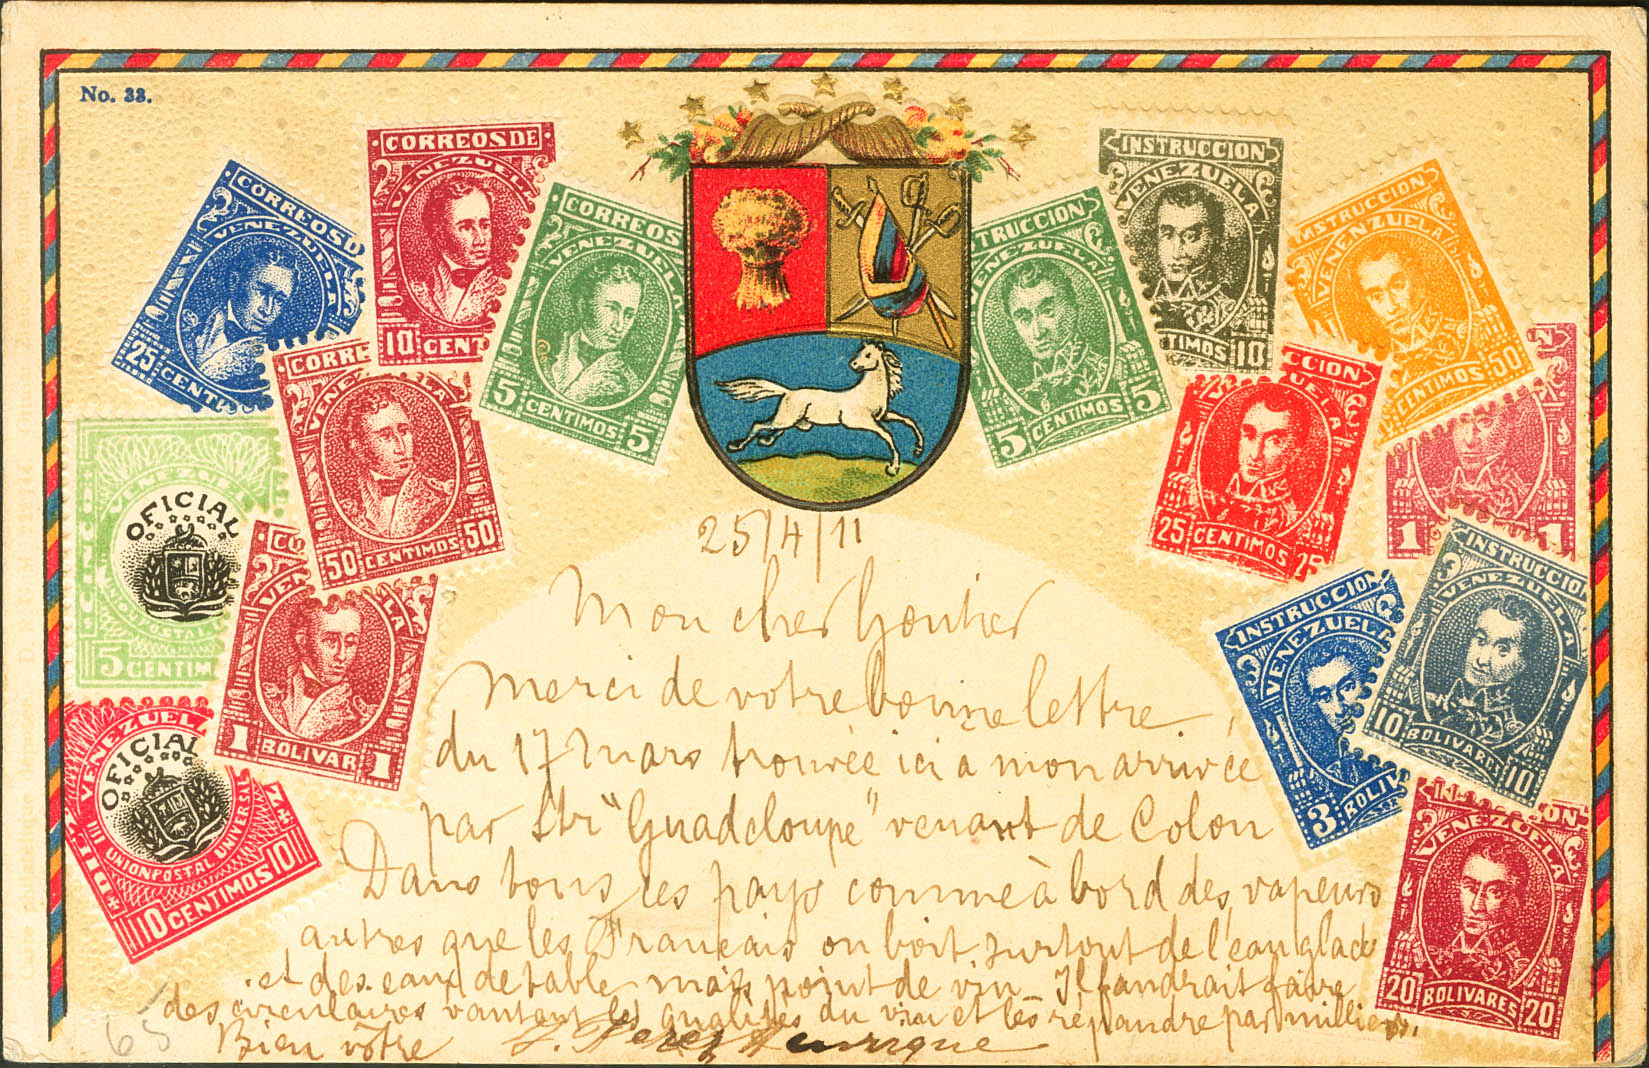 No. 33.
CORREOS DE
VENEZUELA
10 CENT
CORREOS D
VENEZUELA
25 CENT
CORREOS
VENEZUELA
5 CENTIMOS 5
CORRE
VENEZUELA
50 CENTIMOS 50
VENEZUEL
OFICIAL
5 CENTIM
VEN LA
1 BOLIVAR 1
VENEZUEL
OFICIAL
UNION POSTAL UNIVERSAL
10 CENTIMOS 10
TRUCCION
VENEZUELA
5 CENTIMOS 5
INSTRUCCION
VENEZUELA
TIMOS 10
INSTRUCCION
VENENZUELA
CENTIMOS 50
CCION
UELA
25 CENTIMOS 25
1 1
INSTRUCCION
VENEZUELA
3 BOLIV
INSTRUCCIO
VENEZUELA
10 BOLIVAR 10
ON
VENEZUELA
20 BOLIVARES 20
25/4/11
Mon cher Gontier
Merci de votre bonne lettre,
du 17 mars trouvée ici a mon arrivée
par Str "Guadeloupe" venant de Colon
Dans tous ces pays comme à bord des vapeurs
autres que les Francais on boit surtout de l'eau glacée
et des eaux de table mais point de vin Il faudrait faire
des circulaires vantant les qualités du vin et les répandre par milliers.
Bien vôtre
65